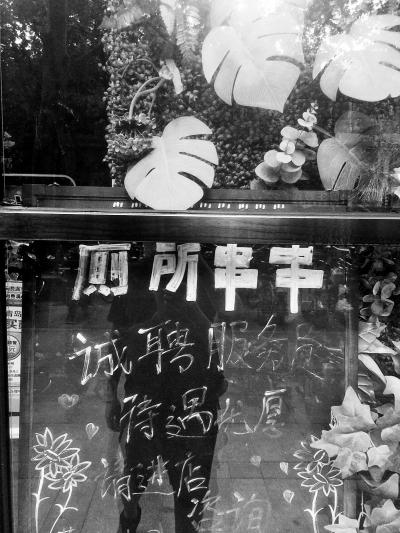 厕所串串
诚聘服务员
待遇优愿
请进店
咨询